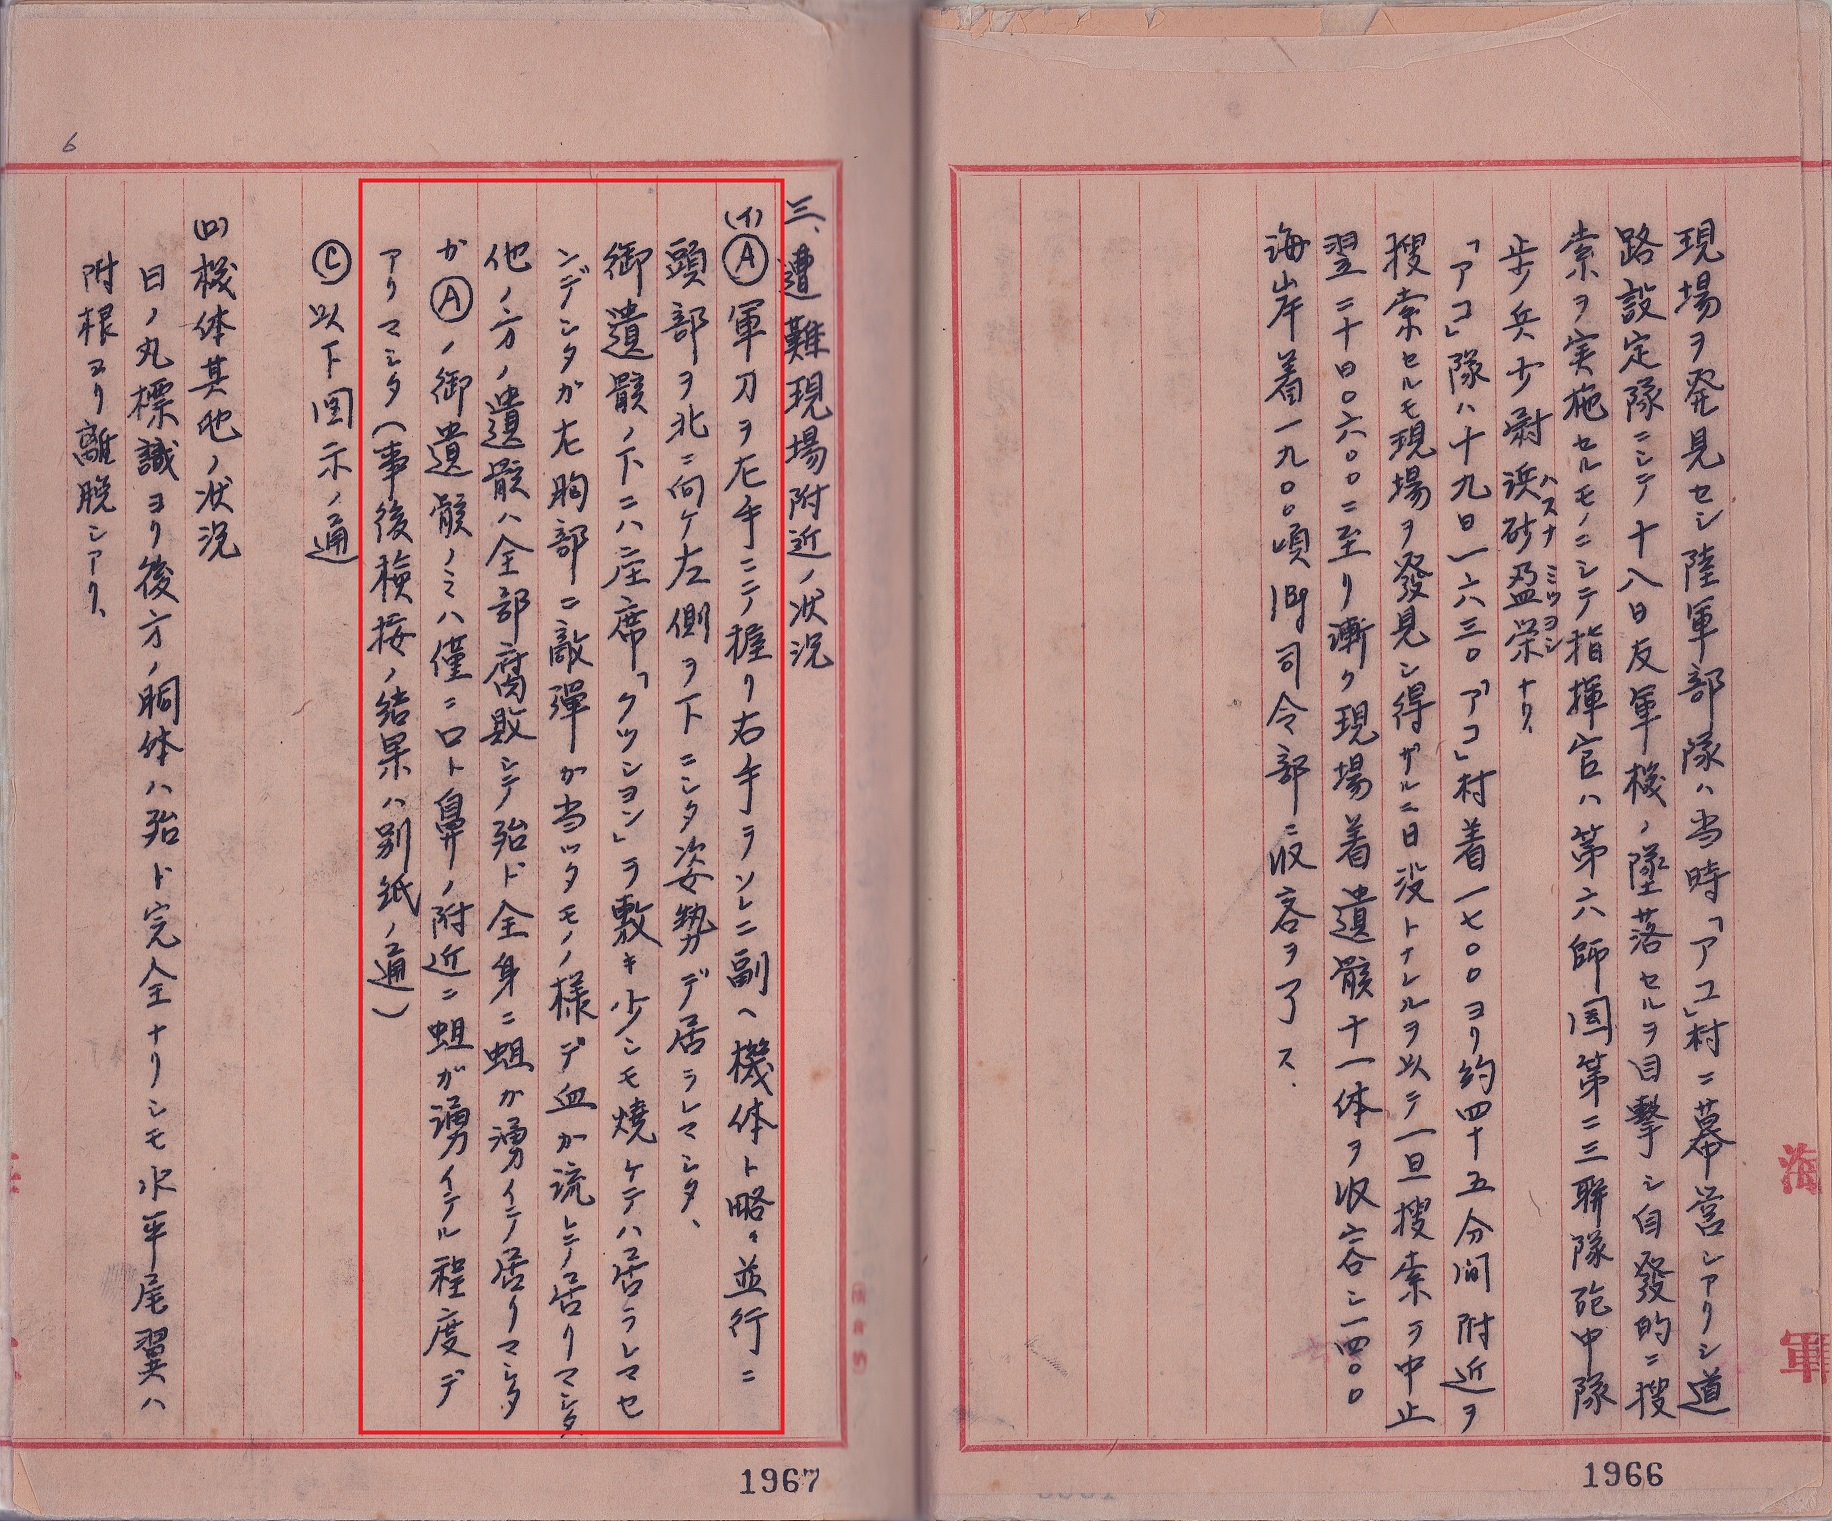 現場ヲ発見セシ陸軍部隊ハ当時「アコ」村ニ幕営シアリシ道
路設定隊ニシテ十八日友軍機ノ墜落セルヲ目撃シ自發的ニ捜
索ヲ実施セルモノニシテ指揮官ハ第六師団第二三聯隊砲中隊
歩兵少尉浜砂盈栄ナリ、
ハスナ ミツヨシ
「アコ」隊ハ十九日一六三〇「アコ」村着一七〇〇ヨリ約四十五分間附近ヲ
捜索セルモ現場ヲ發見シ得ザルニ日没トナレルヲ以テ一旦捜索ヲ中止
翌二十日〇六〇〇ニ至リ漸ク現場着遺骸十一体ヲ収容シ一四〇〇
海岸着一九〇〇頃 司令部ニ収容ヲ了ス、
1966
海
軍
三、遭難現場附近ノ状況
(イ)Ⓐ軍刀ヲ左手ニテ握リ右手ヲソレニ副ヘ機体ト略々並行ニ
頭部ヲ北ニ向ケ左側ヲ下ニシタ姿勢デ居ラレマシタ、
御遺骸ノ下ニハ座席「クツシヨン」ヲ敷キ少シモ燒ケテハ居ラレマセ
ンデシタガ左胸部ニ敵彈ガ当ツタモノノ様デ血ガ流レテ居リマシタ
他ノ方ノ遺骸ハ全部腐敗シテ殆ド全身ニ蛆ガ湧イテ居リマシタ
ガⒶノ御遺骸ノミハ僅ニ口ト鼻ノ附近ニ蛆ガ湧イテル程度デ
アリマシタ(事後檢按ノ結果ハ別紙ノ通)
Ⓒ以下図示ノ通
(ロ)機体其他ノ状況
日ノ丸標識ヨリ後方ノ胴体ハ殆ド完全ナリシモ水平尾翼ハ
附根ヨリ離脱シアリ、
6
1967